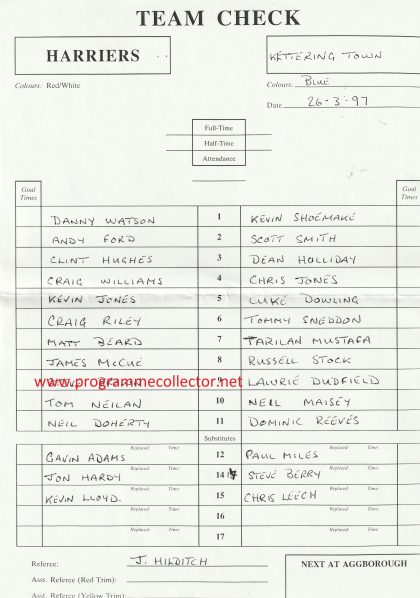 TEAM CHECK
HARRIERS
KETTERING TOWN
Colours: Red/White
Colours: BLUE
Date 26-3-97
Full-Time
Half-Time
Attendance
Goal Times
Goal Times
DANNY WATSON 1 KEVIN SHOEMAKE
ANDY FORD 2 SCOTT SMITH
CLINT HUGHES 3 DEAN HOLLIDAY
CRAIG WILLIAMS 4 CHRIS JONES
KEVIN JONES 5 LUKE DOWLING
CRAIG RILEY 6 TOMMY SNEDDON
MATT BEARD 7 TARILAN MUSTAFA
JAMES McCUE 8 RUSSELL STOCK
www.programmecollector.net
9 LAURIE DUDFIELD
TOM NEILAN 10 NEIL MAISEY
NEIL DOHERTY 11 DOMINIC REEVES
Substitutes
Replaced: Time: Replaced: Time:
GAVIN ADAMS 12 PAUL MILES
Replaced: Time: Replaced: Time:
JON HARDY 14 STEVE BERRY
Replaced: Time: Replaced: Time:
KEVIN LLOYD. 15 CHRIS LEECH
Replaced: Time: Replaced: Time:
16
Replaced: Time: Replaced: Time:
17
Referee: J. HILDITCH
Asst. Referee (Red Trim):
Asst. Referee (Yellow Trim):
NEXT AT AGGBOROUGH